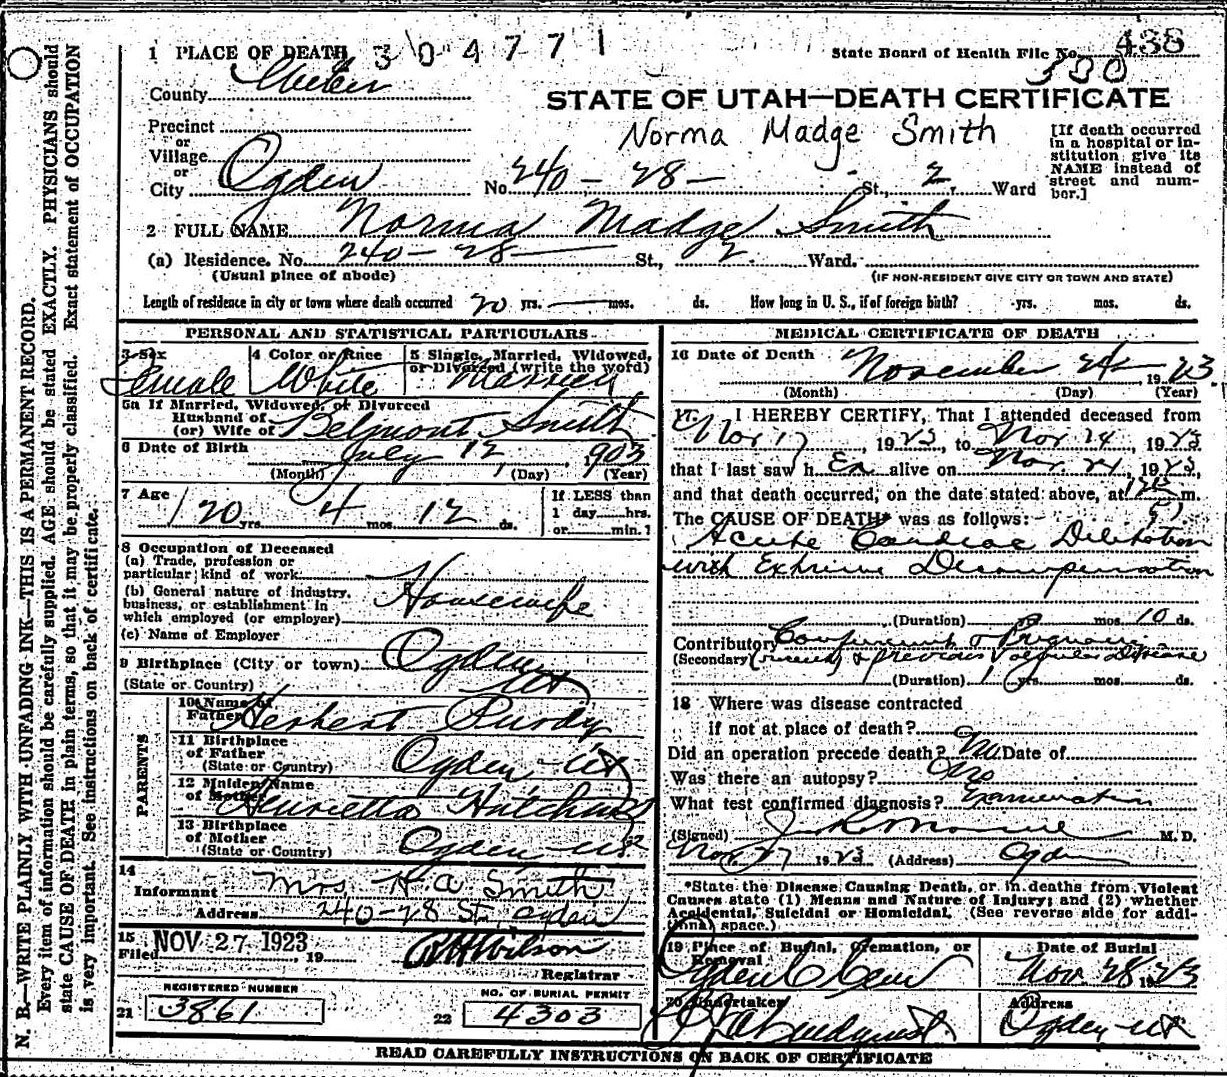 1 PLACE OF DEATH 304771
State Board of Health File No. 438
330
County Weber
STATE OF UTAH—DEATH CERTIFICATE
Norma Madge Smith
Precinct
or
Village
or
City Ogden
No. 240 - 28 - St., 2 Ward
[If death occurred in a hospital or institution give its NAME instead of street and number.]
2 FULL NAME Norma Madge Smith
(a) Residence. No. 240 - 28 St., 2 Ward.
(Usual place of abode)
(IF NON-RESIDENT GIVE CITY OR TOWN AND STATE)
Length of residence in city or town where death occurred 20 yrs. mos. ds. How long in U. S., if of foreign birth? yrs. mos. ds.
PERSONAL AND STATISTICAL PARTICULARS
3 Sex Female
4 Color or Race White
5 Single, Married, Widowed, or Divorced (write the word) Married
5a If Married, Widowed, or Divorced
Husband of
(or) Wife of Belmont Smith
6 Date of Birth July 12, 903
(Month) (Day) (Year)
7 Age 20 yrs. 4 mos. 12 ds.
If LESS than
1 day hrs.
or min.
8 Occupation of Deceased
(a) Trade, profession or
particular kind of work
(b) General nature of industry,
business, or establishment in
which employed (or employer)
Housewife
(c) Name of Employer
9 Birthplace (City or town) Ogden
(State or Country) Ut
PARENTS
10 Name of Father Herbert Purdy
11 Birthplace
of Father Ogden - Ut
(State or Country)
12 Maiden Name
of Mother Henrietta
13 Birthplace
of Mother Ogden - Ut
(State or Country)
14
Informant Mrs. H. A. Smith
Address 240-28 St., Ogden
15 NOV 27 1923
Filed , 19
Wilson
Registrar
REGISTERED NUMBER
21 3861
NO. OF BURIAL PERMIT
22 4303
MEDICAL CERTIFICATE OF DEATH
16 Date of Death November 24, 1923
(Month) (Day) (Year)
17 I HEREBY CERTIFY, That I attended deceased from
Nov 17, 1923, to Nov 24, 1923
that I last saw her alive on Nov. 24, 1923,
and that death occurred, on the date stated above, at m.
The CAUSE OF DEATH* was as follows:
Acute Cardiac Dilitation
with Extreme Decompensation
(Duration) mos. 10 ds.
Contributory Confinement & Pregnancy
(Secondary) (recent) & previous Valvular Disease
(Duration) 1 yrs. mos. ds.
18 Where was disease contracted
if not at place of death?
Did an operation precede death? No Date of
Was there an autopsy? No
What test confirmed diagnosis? Examination
(Signed) M. D.
Nov. 27 1923 (Address) Ogden
*State the Disease Causing Death, or in deaths from Violent
Causes state (1) Means and Nature of Injury; and (2) whether
Accidental, Suicidal or Homicidal. (See reverse side for additional space.)
19 Place of Burial, Cremation, or
Removal
Ogden C Cem
Date of Burial
Nov. 28 1923
20 Undertaker
Lindquist
Address
Ogden - Ut
READ CAREFULLY INSTRUCTIONS ON BACK OF CERTIFICATE
N. B.—WRITE PLAINLY WITH UNFADING INK—THIS IS A PERMANENT RECORD.
Every item of information should be carefully supplied. AGE should be stated EXACTLY. PHYSICIANS should
state CAUSE OF DEATH in plain terms, so that it may be properly classified. Exact statement of OCCUPATION
is very important. See instructions on back of certificate.